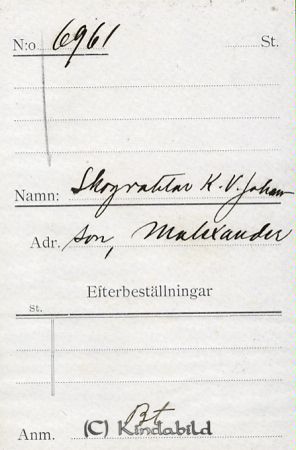 N:o 6961 St.
Namn: Skogvaktar K. V. Johans
Adr. son, Malexander
Efterbeställningar
St.
Bt
(C) Kindabild
Anm.